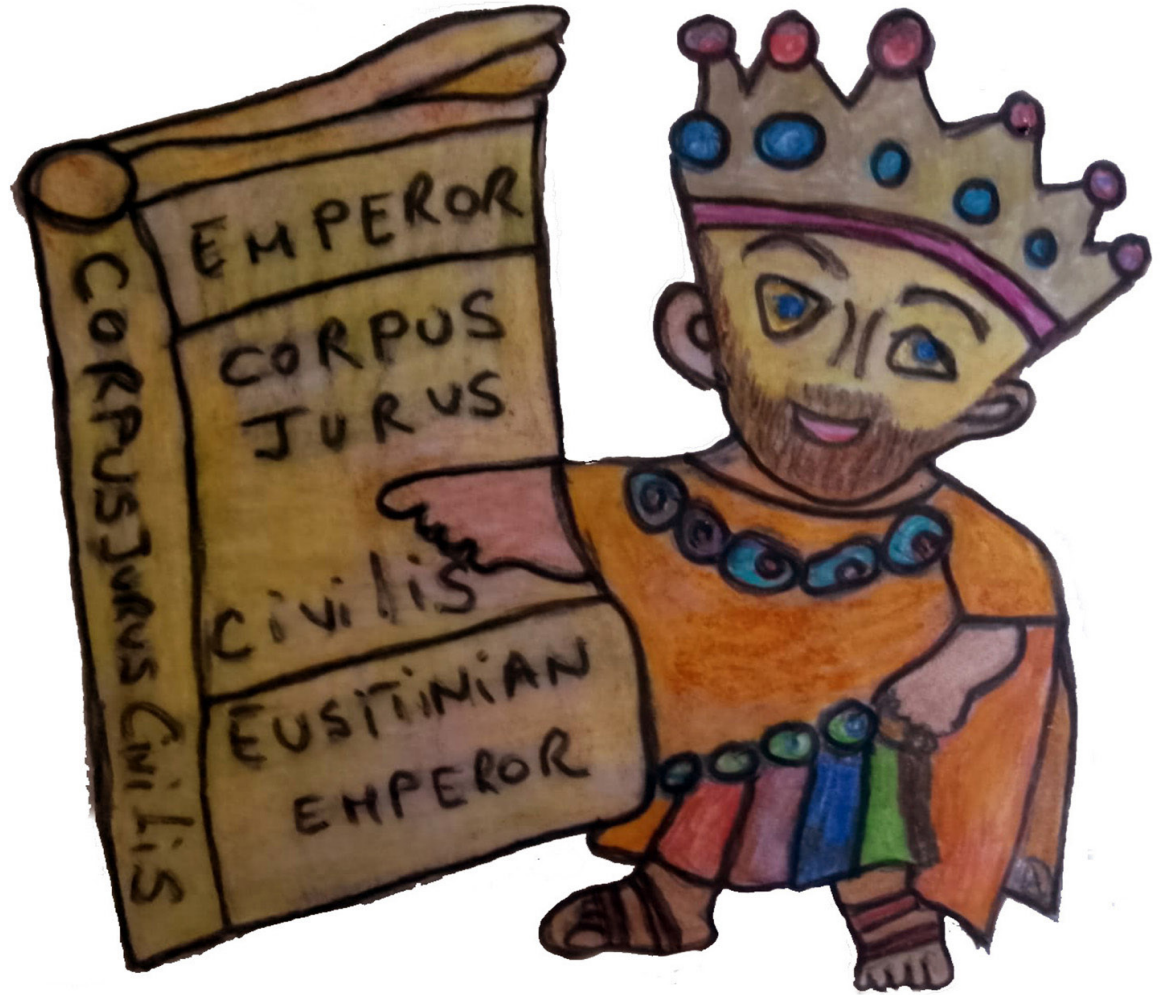 CORPUS JURUS CiviLiS
EMPEROR
CORPUS
JURUS
Civilis
EUSITINIAN
EMPEROR